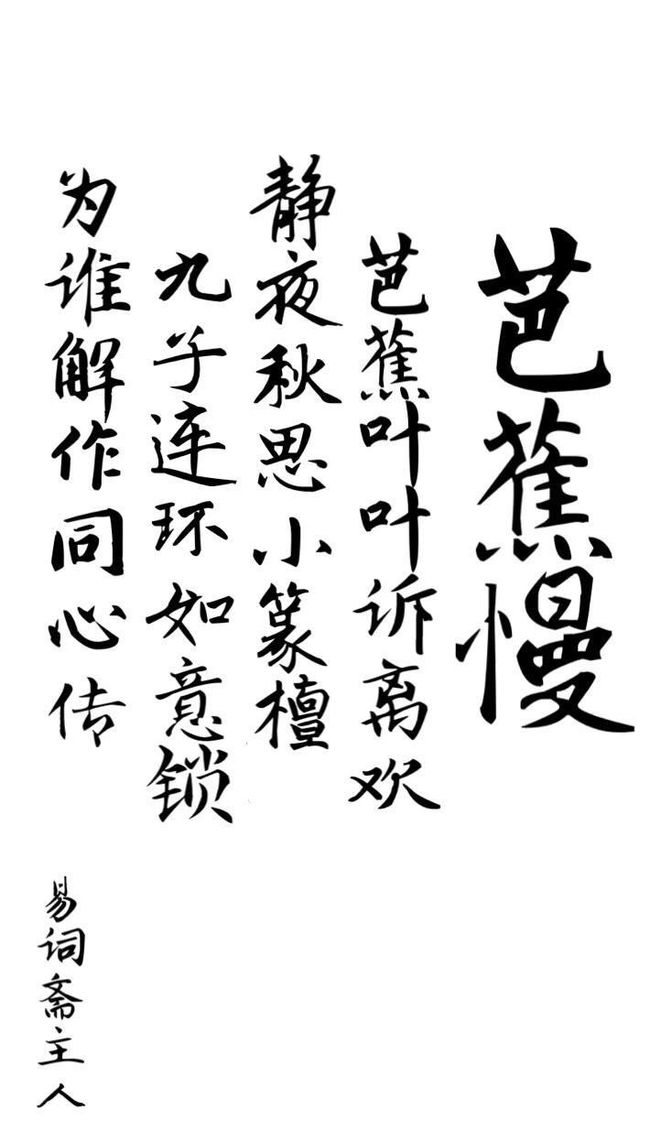 芭蕉慢
芭蕉叶叶诉离欢
静夜秋思小篆檀
九子连环如意锁
为谁解作同心传
易词斋主人